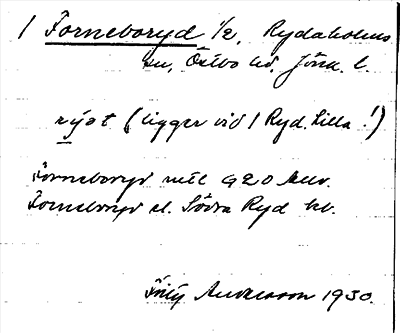 1 Forneboryd 1/2, Rydaholms
sn, Östbo hd, Jönk. l.
rýət (ligger vid 1 Ryd. Lilla !)
Forneboryd mtl G20 Allv.
Forneboryd el. Södra Ryd kb.
Andersson 1930.